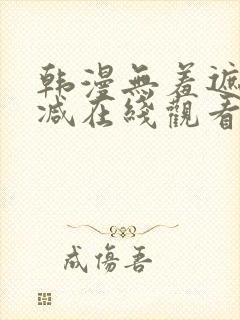 韩漫無羞遮
减在綫觀看
成傷吾